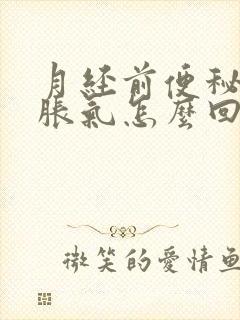 月经前便秘
脹氣怎麼回
微笑的愛情魚